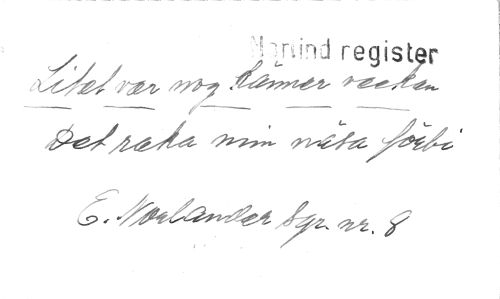 register
Litet var nog känner vecken
Det raka min näsa förbi
E. Norlander Sgr. nr. 8